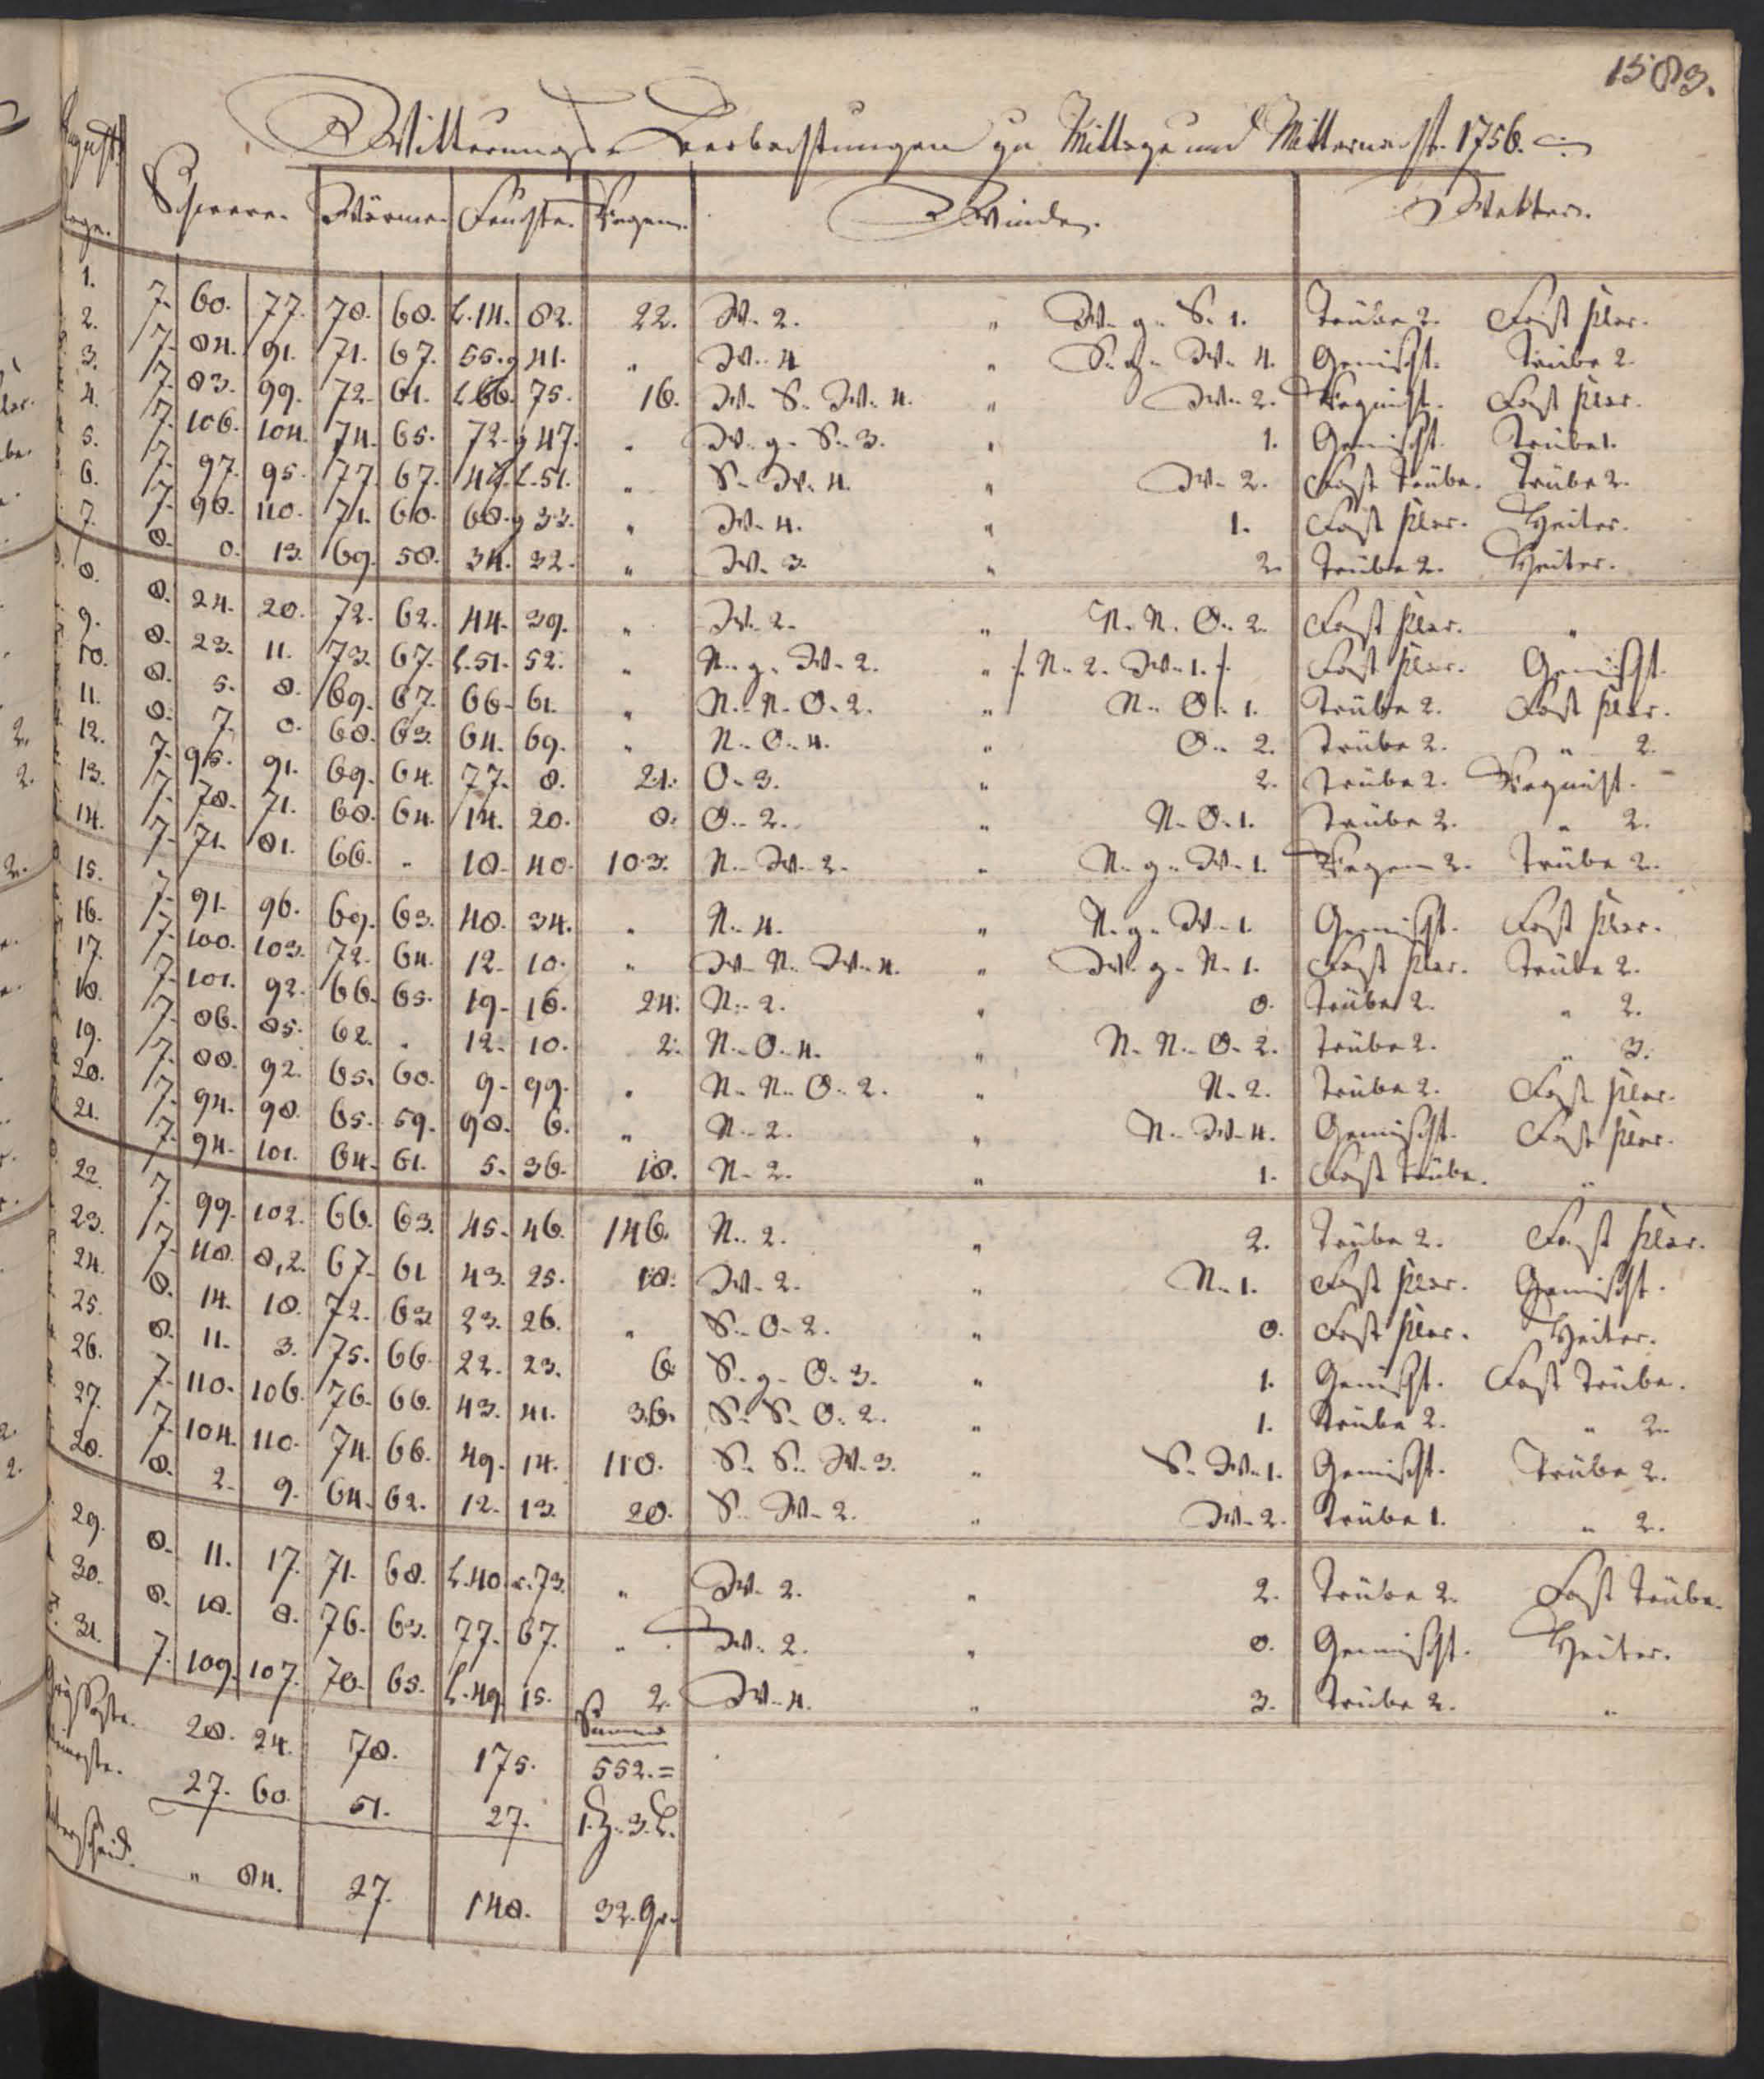 1583.
Witterungs-Beobachtungen zu Mittage und Mitternacht. 1756.
August.
Tage. Schwere. Wärme. Feuchte. Regen. Winde. Wetter.
1. 7. 60. 77. 78. 68. L.14. 82. 22. W. 2. " W. g. S. 1. Trübe 2. Fast klar.
2. 7. 84. 91. 71. 67. 55. g 41. " W. 4 " S. g. W. 4. Gemischt. Trübe 2.
3. 7. 83. 99. 72. 61. L.66. 75. 16. W. S. W. 4. " W. 2. Regnicht. Fast klar.
4. 7. 106. 104. 74. 65. 72. g 47. " W. g. S. 3. " 1. Gemischt. Trübe 1.
5. 7. 97. 95. 77. 67. 47. L.51. " S. W. 4. " W. 2. Fast Trübe. Trübe 2.
6. 7. 98. 110. 71. 60. 68. g 33. " W. 4. " 1. Fast klar. Heiter.
7. 8. 0. 13. 69. 58. 34. 32. " W. 3. " 2. Trübe 2. Heiter.
8. 8. 24. 20. 72. 62. 44. 39. " W. 2. " N. N. O. 2. Fast klar. "
9. 8. 23. 11. 73. 67. L.51. 52. " N. g. W. 2. " /. N. 2. W. 1. /. Fast klar. Gemischt.
10. 8. 5. 8. 69. 67. 66. 61. " N. N. O. 2. " N. O. 1. Trübe 2. Fast klar.
11. 8. 7. 0. 68. 63. 64. 69. " N. O. 4. " O. 2. Trübe 2. " 2.
12. 7. 95. 91. 69. 64. 77. 8. 21. O. 3. " 2. Trübe 2. Regnicht.
13. 7. 78. 71. 68. 64. 14. 20. 8. O. 2. " N. O. 1. Trübe 2. " 2.
14. 7. 71. 81. 66. " 18. 40. 103. N. W. 2. " N. g. W. 1. Regen 2. Trübe 2.
15. 7. 91. 96. 69. 63. 48. 34. " N. 4. " N. g. W. 1. Gemischt. Fast klar.
16. 7. 100. 103. 72. 64. 12. 10. " W. N. W. 4. " W. g. N. 1. Fast klar. Trübe 2.
17. 7. 101. 92. 66. 65. 19. 16. 24. N. 2. " 0. Trübe 2. " 2.
18. 7. 86. 85. 62. " 12. 10. 2. N. O. 4. " N. N. O. 2. Trübe 2. " 3.
19. 7. 88. 92. 65. 60. 9. 99. " N. N. O. 2. " N. 2. Trübe 2. Fast klar.
20. 7. 94. 98. 65. 59. 98. 6. " N. 2. " N. W. 4. Gemischt. Fast klar.
21. 7. 94. 101. 64. 61. 5. 36. 18. N. 2. " 1. Fast Trübe. "
22. 7. 99. 102. 66. 63. 45. 46. 146. N. 2. " 2. Trübe 2. Fast klar.
23. 7. 110. 8,2. 67. 61 43. 25. 18. W. 2. " N. 1. Fast klar. Gemischt.
24. 8. 14. 18. 72. 63 23. 26. " S. O. 2. " 0. Fast klar. Heiter.
25. 8. 11. 3. 75. 66. 22. 23. 6. S. g. O. 3. " 1. Gemischt. Fast Trübe.
26. 7. 110. 106. 76. 66. 43. 41. 36. S. S. O. 2. " 1. Trübe 2. " 2.
27. 7. 104. 110. 74. 66. 49. 14. 110. S. S. W. 3. " S. W. 1. Gemischt. Trübe 2.
28. 8. 2. 9. 64. 62. 12. 13. 20. S. W. 2. " W. 2. Trübe 1. " 2.
29. 8. 11. 17. 71. 68. L.40. 73. " W. 2. " 2. Trübe 2. Fast Trübe.
30. 8. 18. 8. 76. 63. 77. 67. " W. 2. " 0. Gemischt. Heiter.
31. 7. 109. 107. 70. 65. L.49 15. 2. W. 4. " 3. Trübe 2. "
Summa
28. 24. 78. 175. 552. =
27. 60. 51. 27. 1. Z. 3. L.
" 84. 27. 148. 32. Gr.